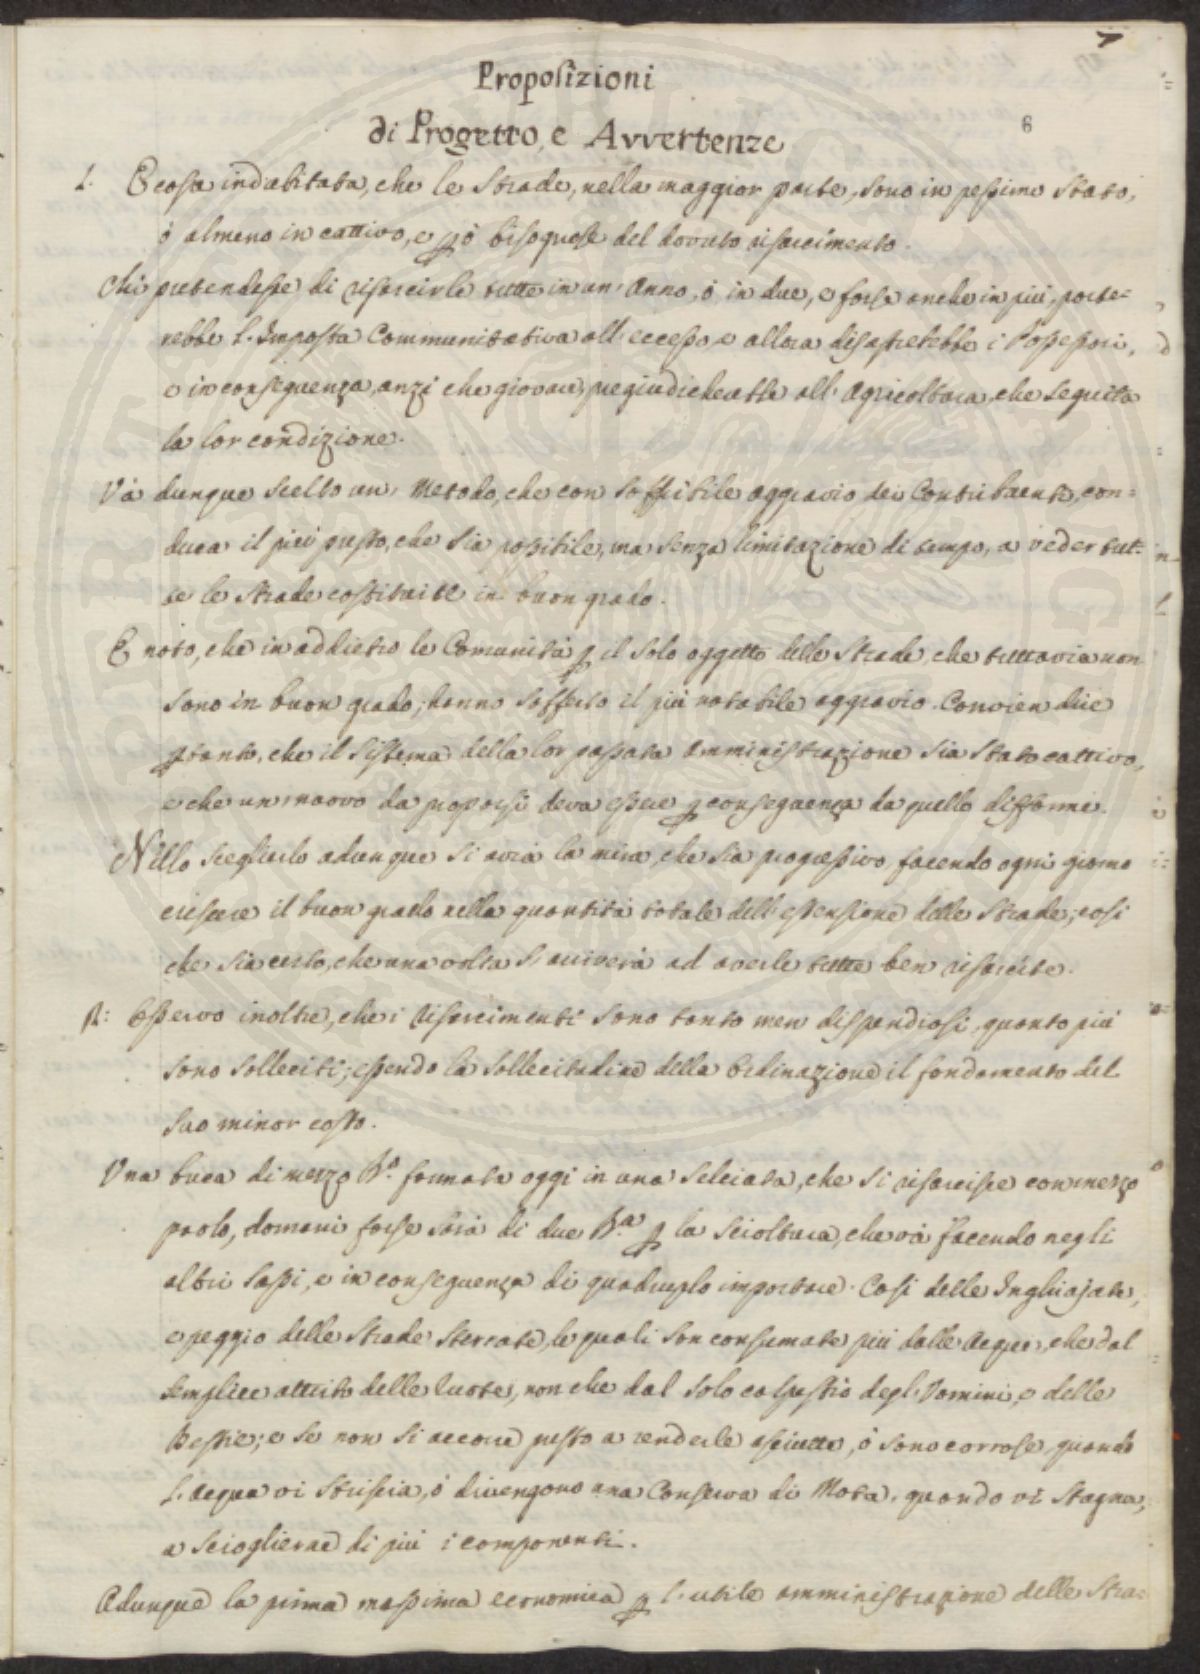 7
Proposizioni
6
di Progetto, e Avvertenze
1. È cosa indubitata, che le Strade, nella maggior parte, sono in pessimo stato,
ò almeno in cattivo, e però bisognose del dovuto risarcimento.
Chi pretendesse di risarcirle tutte in un' Anno, ò in due, e forse anche in più, porte=
rebbe l'Imposta Communitativa all'eccesso, e allora disastrerebbe i Possessori,
e in conseguenza, anzi che giovare, pregiudicherebbe all'Agricoltura, che seguita
la lor condizione.
Và dunque scelto un' Metodo, che con soffribile aggravio dei Contribuenti, con=
duca il più presto, che sia possibile, ma senza limitazione di tempo, a veder tut=
te le Strade costituite in buon grado.
È noto, che in addietro le Comunità per il solo oggetto delle Strade, che tuttavia non
sono in buon grado; hanno sofferto il più notabile aggravio. Convien dire
pertanto, che il Sistema della lor passata amministrazione sia stato cattivo,
e che un nuovo da proporsi deva essere per conseguenza da quello difforme.
Nello sceglierlo adunque si avrà la mira, che sia progressivo, facendo ogni giorno
crescere il buon grado nella quantità totale dell'estensione delle Strade; così
che sia certo, che una volta si arriverà ad averle tutte ben risarcite.
2: Osservo inoltre, che i risarcimenti sono tanto men dispendiosi, quanto più
sono solleciti; essendo la sollecitudine della Ordinazione il fondamento del
suo minor costo.
Una buca di mezzo B.o formata oggi in una Selciata, che si risarcisce con mezzo
paolo, domani forse sarà di due B.a per la scioltura, che và facendo negli
altri Sassi, e in conseguenza di quadruplo importare. Così delle Inghiajate,
e peggio delle Strade sterrate, le quali son consumate più dalle Acque, che dal
semplice attrito delle Ruote, non che dal solo calpestio degl'Uomini, e delle
Bestie; e se non si accorre presto a renderle asciutte, ò sono corrose, quando
l'acqua vi striscia, ò divengono una Conserva di Mota, quando vi stagna,
a scioglierne di più i componenti.
Adunque la prima massima economica per l'utile amministrazione delle Stra=